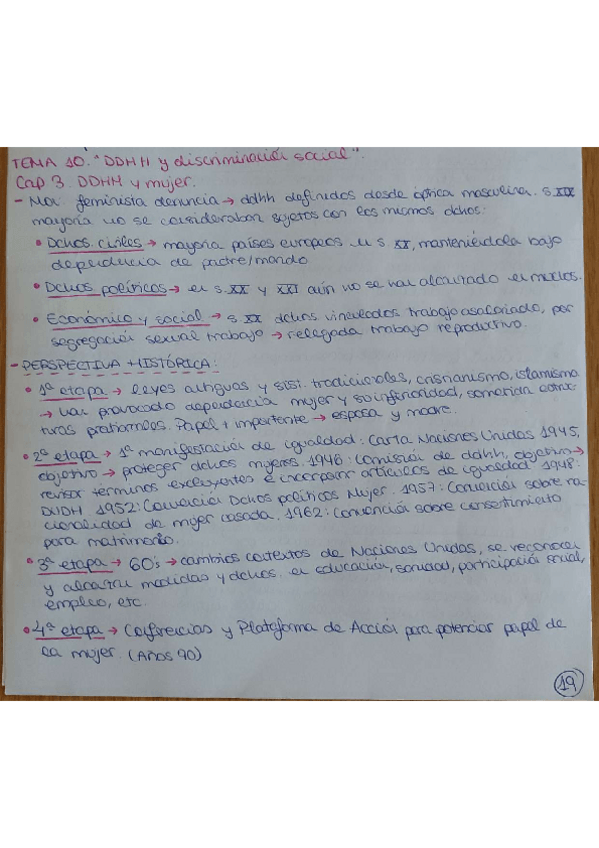 TEMA 10. "DDHH y discriminación social".
Cap 3. DDHH y mujer.
- Mov. feminista denuncia → ddhh definidos desde óptica masculina. s.XIX
mayoría no se consideraban sujetos con los mismos dchos:
• Dchos. civiles → mayoría países europeos en s. XX, manteniéndola bajo
dependencia de padre/marido
• Dchos políticos → en s. XX y XXI aún no se han alcanzado en muchos.
• Económico y social → s. XX dchos vinculados trabajo asalariado, por
segregación sexual trabajo → relegada trabajo reproductivo.
- PERSPECTIVA HISTÓRICA:
• 1ª etapa → leyes antiguas y sist. tradicionales, cristianismo, islamismo
→ han provocado dependencia mujer y su inferioridad, sometida estruc-
turas patriarcales. Papel + importante → esposa y madre.
• 2ª etapa → 1ª manifestación de igualdad: Carta Naciones Unidas 1945,
objetivo → proteger dchos mujeres. 1946: Comisión de ddhh, objetivo →
revisar términos excluyentes e incorporar artículos de igualdad 1948:
DUDH 1952: Convención Dchos políticos Mujer. 1957: Convención sobre na-
cionalidad de mujer casada. 1962: Convención sobre consentimiento
para matrimonio.
• 3ª etapa → 60's → cambios contextos de Naciones Unidas, se reconocen
y alcanzan medidas y dchos. en educación, sanidad, participación social,
empleo, etc.
• 4ª etapa → Conferencias y Plataforma de Acción para potenciar papel de
la mujer. (Años 90)
19